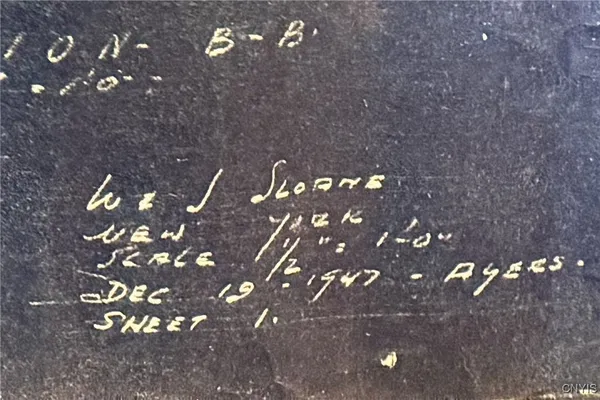 ION- B-B.
W & J SLOANE
NEW YORK
SCALE 1/2" = 1'-0"
DEC 19 - 1947 - AYERS.
SHEET 1.
CNYIS